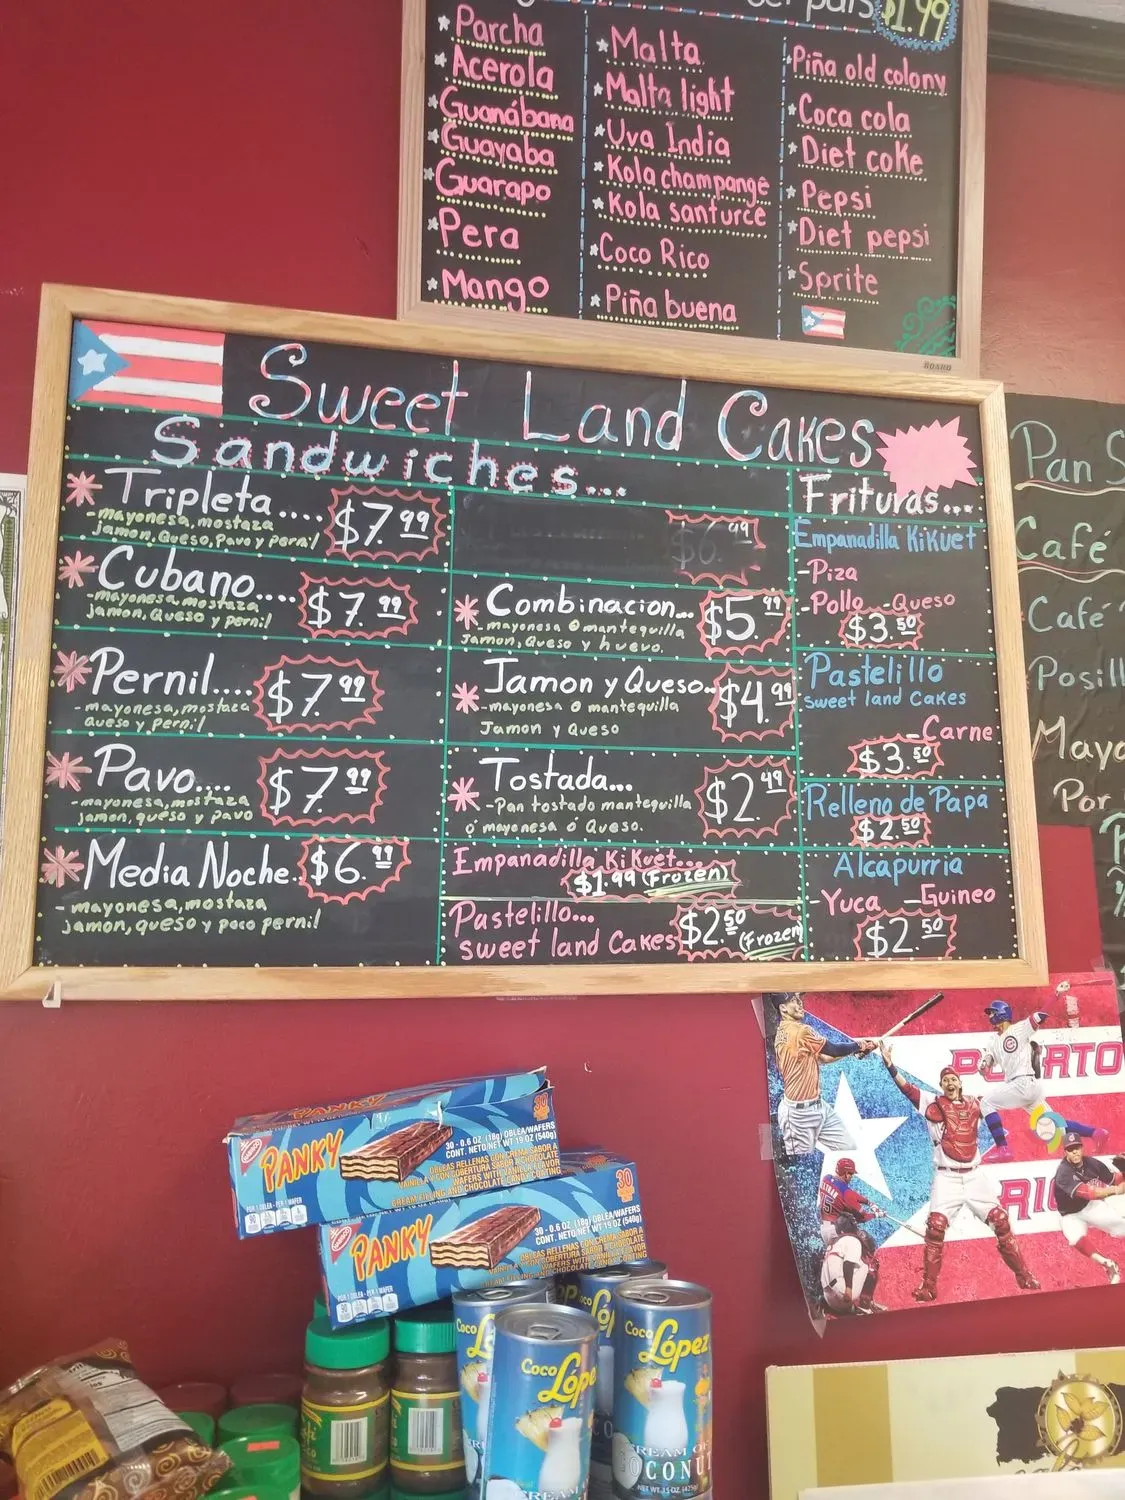 $1.99
Parcha
Acerola
Guanábana
Guayaba
Guarapo
Pera
Mango
Malta
Malta light
Uva India
Kola champange
Kola santurce
Coco Rico
Piña buena
Piña old colony
Coca cola
Diet coke
Pepsi
Diet pepsi
Sprite
BOARD
Sweet Land Cakes
Sandwiches...
Tripleta.... $7.99
-mayonesa, mostaza
jamon, Queso, Pavo y Pernil
Cubano.... $7.99
-mayonesa, mostaza
jamon, Queso y pernil
Pernil.... $7.99
-mayonesa, mostaza
Queso y Pernil
Pavo.... $7.99
-mayonesa, mostaza
jamon, queso y pavo
Media Noche.. $6.99
-mayonesa, mostaza
jamon, queso y poco pernil
$6.99
Combinacion... $5.99
-mayonesa o mantequilla
Jamon, Queso y huevo.
Jamon y Queso.. $4.99
-mayonesa o mantequilla
Jamon y Queso
Tostada... $2.49
-Pan tostado mantequilla
ó mayonesa ó Queso.
Empanadilla KiKuet...
$1.99 (Frozen)
Pastelillo...
sweet land Cakes $2.50 (Frozen)
Frituras...
Empanadilla KiKuet
-Piza
-Pollo -Queso
$3.50
Pastelillo
sweet land Cakes
-Carne
$3.50
Relleno de Papa
$2.50
Alcapurria
-Yuca -Guineo
$2.50
Pan
Café
Café
Mayo
Por
PUERTO
RICO
PANKY
30 - 0.6 OZ (18g) OBLEA/WAFERS
CONT. NETO/NET WT 19 OZ (540g)
OBLEAS RELLENAS CON CREMA SABOR A
VAINILLA Y CON COBERTURA SABOR A CHOCOLATE
WAFERS WITH VANILLA FLAVOR
CREAM FILLING AND CHOCOLATE CANDY COATING
30
PANKY
30 - 0.6 OZ (18g) OBLEAS/WAFERS
CONT. NETO/NET WT 19 OZ (540g)
30
Coco López
Coco López
CREAM OF
COCONUT
NET WT. 15 OZ. (425g)